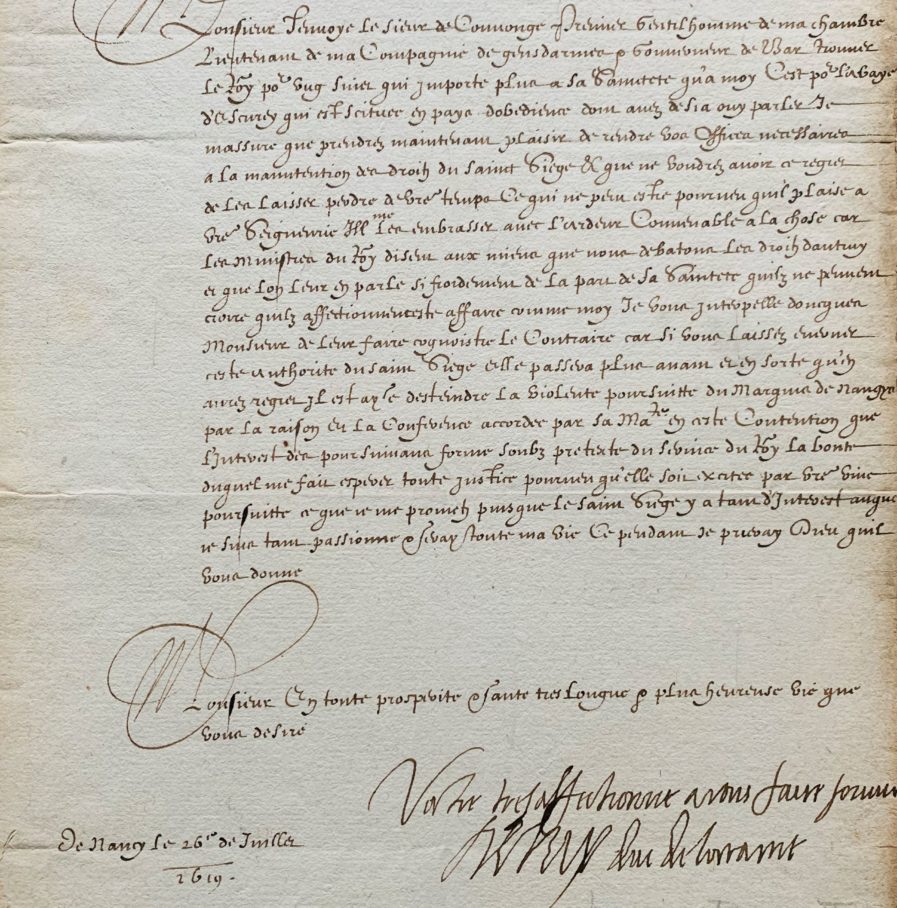 Monsieur J'envoye le sieur de Couvonge Premier gentilhomme de ma chambre
Lieutenant de ma Compagnie de gensdarmes & Gouverneur de Bar trouver
le Roy por ung suiet qui importe plus a sa Saincteté qu'a moy C'est por l'abaye
d'Escurey qui est scituee en pays dobedience dont avez desia ouy parler Je
massure que prendrez maintenant plaisir de rendre vos offices necessaires
a la maintention des droitz du sainct Siege & que ne voudrez avoir ce regret
de les laisser perdre de vre temps Ce qui ne peu estre pourveu quil plaise a
vre Seigneurie Illme les embrasser avec l'ardeur Convenable a la chose car
les Ministres du Roy disent aux miens que nous debatons les droitz dautruy
et que lon leur en parle si froidement de la part de sa Saincteté quilz ne peuvent
croire quilz affectionnent ceste affaire comme moy Je vous interpelle doncques
Monsieur de leur faire cognoistre le Contraire car si vous laissez enerver
ceste authorité du saint Siege elle passera plus avant et en sorte qu'en
aurez regret Il est aysé desteindre la violente poursuitte du Marquis de Nangy
par la raison et la Conference accordee par sa Mate en ceste Contention que
l'interest des poursuivans forme soubz pretexte du service du Roy la bonté
duquel me fait esperer toute justice pourveu qu'elle soit excitee par vre vive
poursuitte ce que ie me prometz puisque le saint Siege y a tant d'Interest auquel
ie suis tant passionné & seray toute ma vie Ce pendant Je prieray Dieu quil
vous donne
Monsieur En toute prosperité & santé tres longue & plus heureuse vie que
vous desire
Votre tresaffectionné a vous faire service
Henry duc de lorraine
De Nancy le 26e de Juillet
1619.